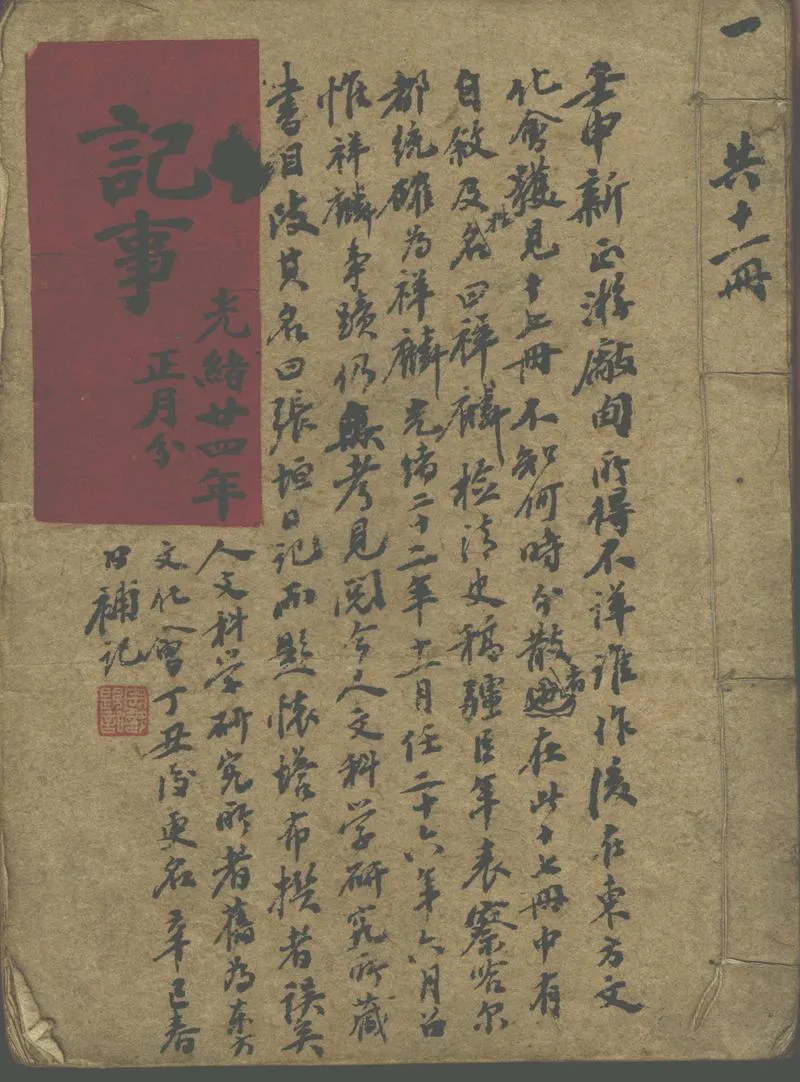 一
共十一冊
壬申新正游廠甸所得不詳誰作後在東方文
化會獲見十七冊不知何時分散者在此十七冊中有
自敘及名曰祥麟檢清史稿疆臣年表察哈尔
都統確为祥麟光緒二十二年十一月任二十六年六月召
惟祥麟事蹟仍無考見閱今人文科學研究所藏
書目改其名曰張垣日記而題懷塔布撰者误矣
人文科学研究所者舊为东方
文化會丁丑後更名辛巳春
日補記
記事
光緒廿四年
正月分